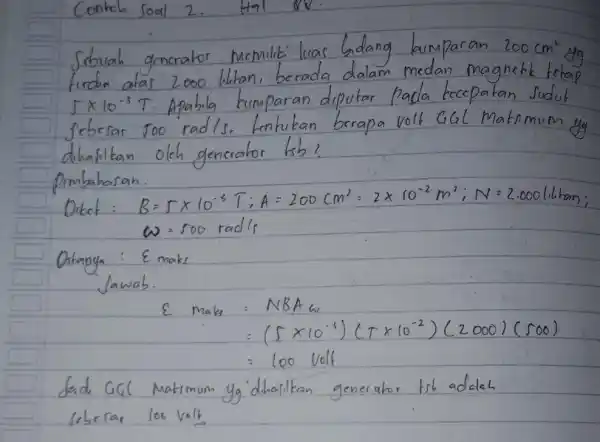 Contoh Soal 2. Hal
Sebuah generator memiliki luas bidang kumparan 200 cm² yg
terdiri atas 2000 lilitan, berada dalam medan magnetik tetap
5 x 10⁻³ T. Apabila kumparan diputar pada kecepatan sudut
sebesar 500 rad/s. tentukan berapa volt GGL maksimum yg
dihasilkan oleh generator tsb!
Pembahasan.
Diket : B = 5 x 10⁻³ T ; A = 200 cm² = 2 x 10⁻² m² ; N = 2.000 lilitan ;
ω = 500 rad/s
Ditanya : ε maks
Jawab.
ε maks = NBA ω
= (5 x 10⁻³) (5 x 10⁻²) (2000) (500)
= 100 Volt
Jadi GGL maksimum yg dihasilkan generator tsb adalah
sebesar 100 Volt